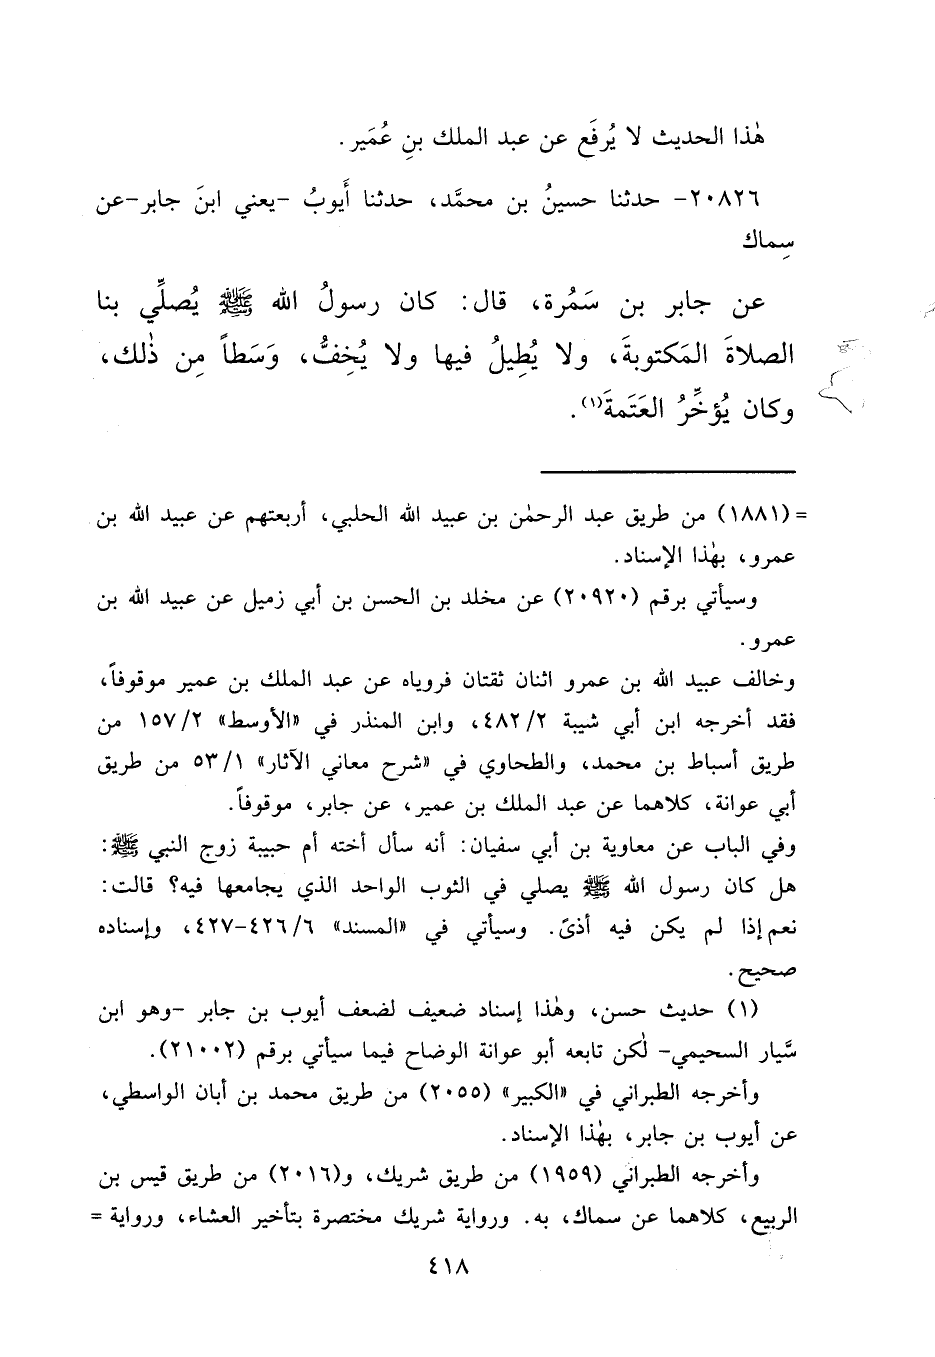 هٰذا الحديث لا يُرفَع عن عبد الملك بنِ عُمَير.
٢٠٨٢٦- حدثنا حسينُ بن محمَّد، حدثنا أَيوبُ -يعني ابنَ جابر-عن
سِماك
عن جابر بن سَمُرة، قال: كان رسولُ الله ﷺ يُصلِّي بنا
الصلاةَ المَكتوبةَ، ولا يُطِيلُ فيها ولا يُخِفُّ، وَسَطاً مِن ذٰلك،
وكان يُؤخِّرُ العَتَمةَ(١).
=(١٨٨١) من طريق عبد الرحمٰن بن عبيد الله الحلبي، أربعتهم عن عبيد الله بن
عمرو، بهٰذا الإسناد.
وسيأتي برقم (٢٠٩٢٠) عن مخلد بن الحسن بن أبي زميل عن عبيد الله بن
عمرو.
وخالف عبيد الله بن عمرو اثنان ثقتان فروياه عن عبد الملك بن عمير موقوفاً،
فقد أخرجه ابن أبي شيبة ٤٨٢/٢، وابن المنذر في «الأوسط» ١٥٧/٢ من
طريق أسباط بن محمد، والطحاوي في «شرح معاني الآثار» ٥٣/١ من طريق
أبي عوانة، كلاهما عن عبد الملك بن عمير، عن جابر، موقوفاً.
وفي الباب عن معاوية بن أبي سفيان: أنه سأل أخته أم حبيبة زوج النبي ﷺ:
هل كان رسول الله ﷺ يصلي في الثوب الواحد الذي يجامعها فيه؟ قالت:
نعم إذا لم يكن فيه أذىً. وسيأتي في «المسند» ٤٢٦/٦-٤٢٧، وإسناده
صحيح.
(١) حديث حسن، وهٰذا إسناد ضعيف لضعف أيوب بن جابر -وهو ابن
سَّيار السحيمي- لٰكن تابعه أبو عوانة الوضاح فيما سيأتي برقم (٢١٠٠٢).
وأخرجه الطبراني في «الكبير» (٢٠٥٥) من طريق محمد بن أبان الواسطي،
عن أيوب بن جابر، بهٰذا الإسناد.
وأخرجه الطبراني (١٩٥٩) من طريق شريك، و(٢٠١٦) من طريق قيس بن
الربيع، كلاهما عن سماك، به. ورواية شريك مختصرة بتأخير العشاء، ورواية =
٤١٨